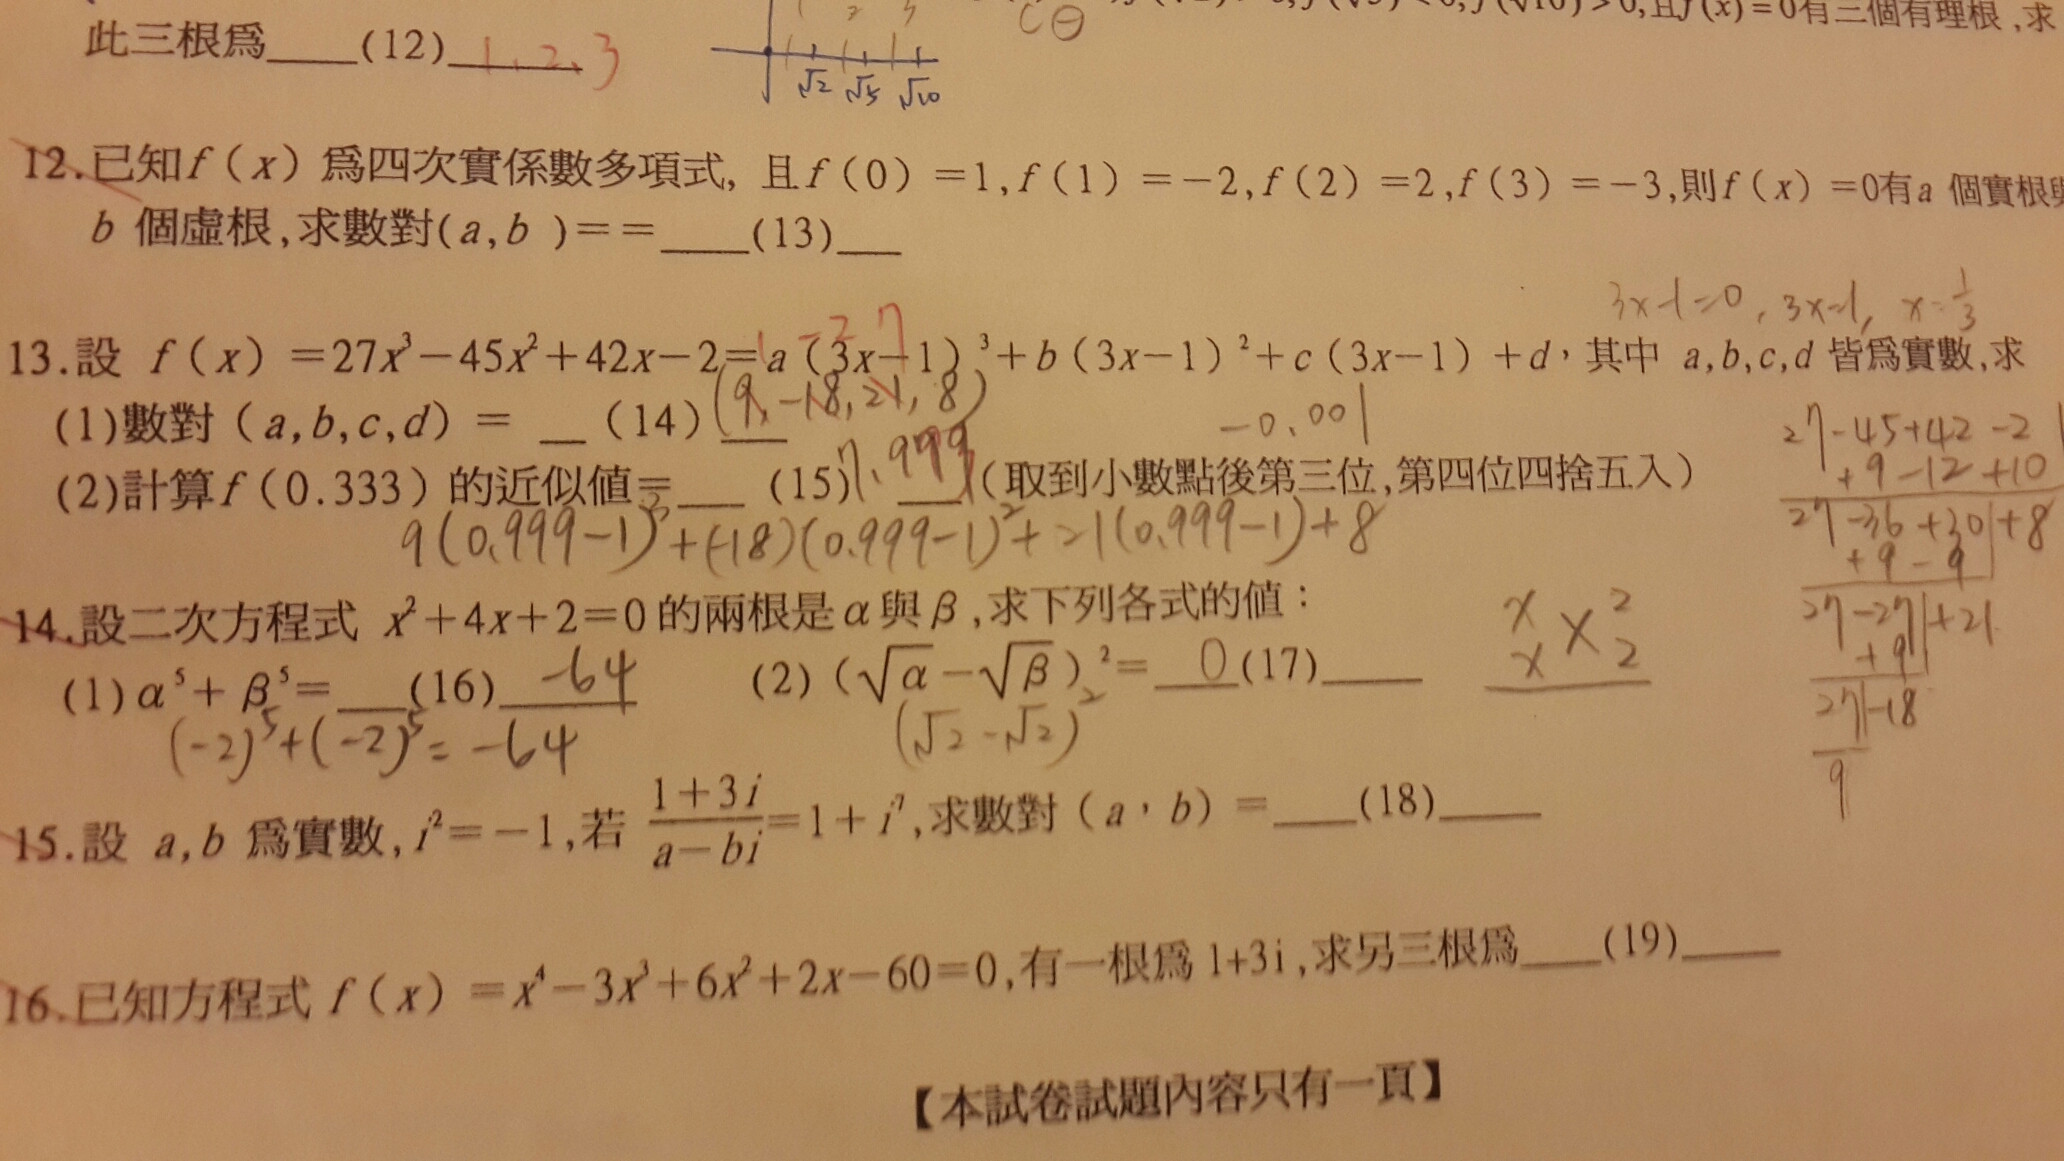 (√2)>0,f(√5)<0,f(√10)>0,且f(x)=0有三個有理根,求
1 2 3
C⊖
此三根爲____(12)______1、2、3
√2 √5 √10
12.已知f(x)爲四次實係數多項式,且f(0)=1,f(1)=-2,f(2)=2,f(3)=-3,則f(x)=0有a個實根與
b個虛根,求數對(a,b)==____(13)___
3x-1=0,3x=1,x=1/3
1 -2 7
13.設 f(x)=27x³-45x²+42x-2=a(3x-1)³+b(3x-1)²+c(3x-1)+d,其中 a,b,c,d 皆爲實數,求
(1)數對(a,b,c,d)= __(14)___(9,-18,21,8)
-0.001
(2)計算f(0.333)的近似值=___(15)7.999(取到小數點後第三位,第四位四捨五入)
9(0.999-1)³+(-18)(0.999-1)²+21(0.999-1)+8
27-45+42-2
+9-12+10
27-36+30+8
+9-9
27-27+21
+9
27-18
9
14.設二次方程式 x²+4x+2=0的兩根是α與β,求下列各式的値:
(1)α⁵+β⁵=___(16)-64 (2)(√α-√β)²=0(17)____
(-2)⁵+(-2)⁵=-64 (√2-√2)²
x 2
x 2
15.設 a,b 爲實數,i²=-1,若 (1+3i)/(a-bi)=1+i⁷,求數對(a,b)=____(18)_____
16.已知方程式 f(x)=x⁴-3x³+6x²+2x-60=0,有一根爲1+3i,求另三根爲____(19)_____
【本試卷試題內容只有一頁】